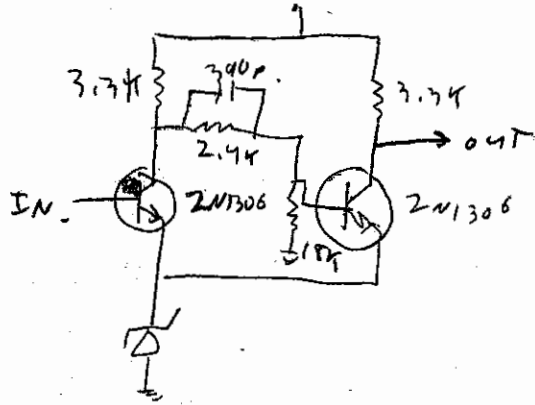 3.3K
390p.
2.4K
3.3K
OUT
IN.
2N1306
2N1306
18K